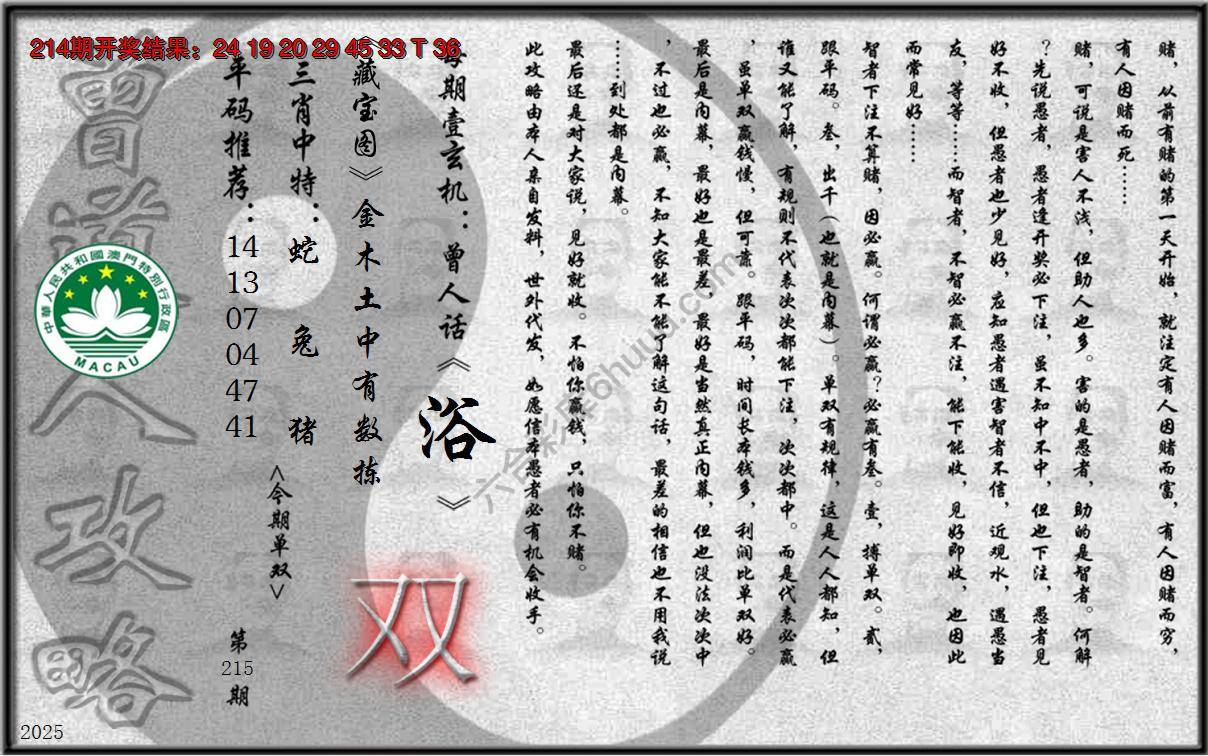 214期开奖结果：24 19 20 29 45 33 T 36
赌，从前有赌的第一天开始，就注定有人因赌而富，有人因赌而穷，
有人因赌而死……
赌，可说是害人不浅，但助人也多。害的是愚者，助的是智者。何解
？先说愚者，愚者逢开奖必下注，虽不知中不中，但也下注，愚者见
好不收，但愚者也少见好，应知愚者遇害智者不信，近观水，遇愚当
友，等等……而智者，不智必赢不注，能下能收，见好即收，也因此
而常见好……
智者下注不算赌，因必赢。何谓必赢？必赢有叁。壹，搏单双。贰，
跟平码。叁，出千（也就是内幕）。单双有规律，这是人人都知，但
谁又能了解，有规则不代表次次都能下注，次次都中。而是代表必赢
，虽单双赢钱慢，但可靠。跟平码，时间长本钱多，利润比单双好。
最后是内幕，最好也是最差，最好是当然真正内幕，但也没法次次中
，不过也必赢，不知大家能不能了解这句话，最差的相信也不用我说
……到处都是内幕。
最后还是对大家说，见好就收。不怕你赢钱，只怕你不赌。
此攻略由本人亲自发料，世外代发，如愿信本愚者必有机会收手。
每期壹玄机：曾人话《浴》
《藏宝图》金木土中有数拣
双
三肖中特：蛇 兔 猪
<今期单双>
平码推荐：
14
13
07
04
47
41
第
215
期
曾道人攻略
中華人民共和國澳門特別行政區
MACAU
六合彩库6huuu.com
2025